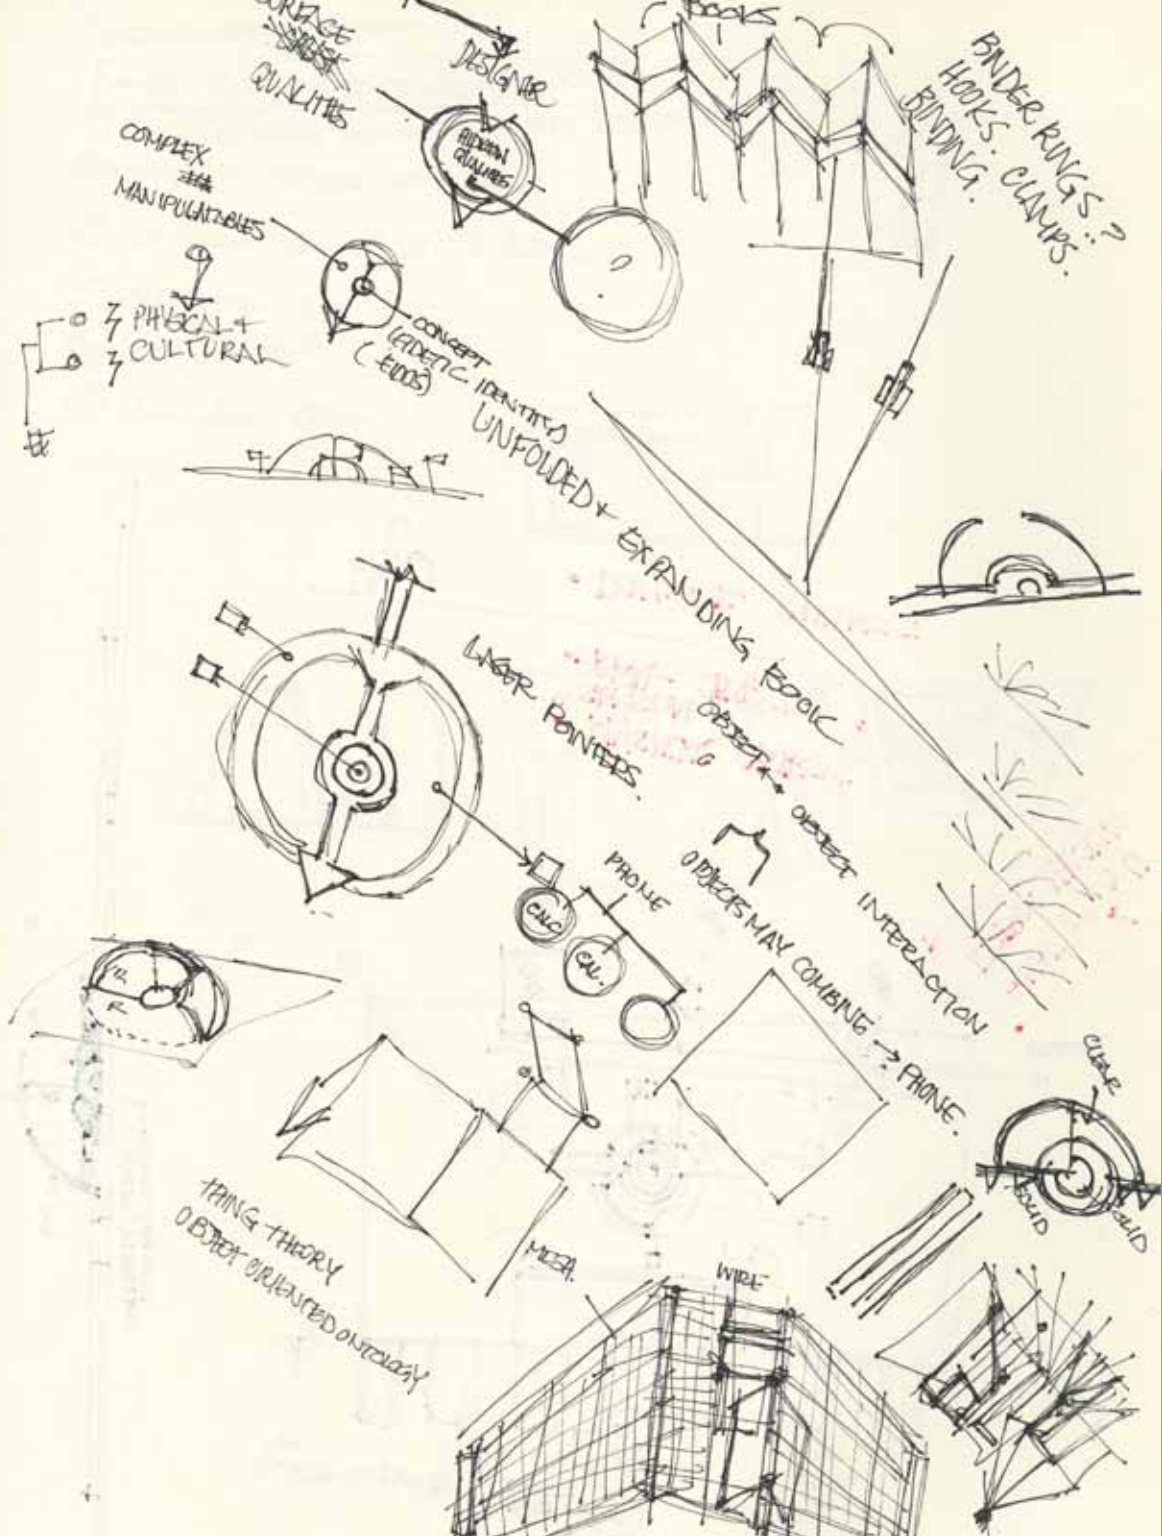 SURFACE
QUALITIES
DESIGNER
BOOKS
BINDER RINGS?
HOOKS. CLAMPS.
BINDING.
HIDDEN
QUALITIES
COMPLEX
MANIPULATABLES
PHYSICAL +
CULTURAL
CONCEPT
(EIDETIC IDENTITY)
(EIDOS)
UNFOLDED + EXPANDING BOOK
LASER POINTERS.
OBJECT
OBJECT INTERACTION
PHONE
CALC
CAL.
OBJECTS MAY COMBINE → PHONE.
R
R
CLEAR
SOLID
SOLID
THING THEORY
OBJECT ORIENTED ONTOLOGY
MESH.
WIRE